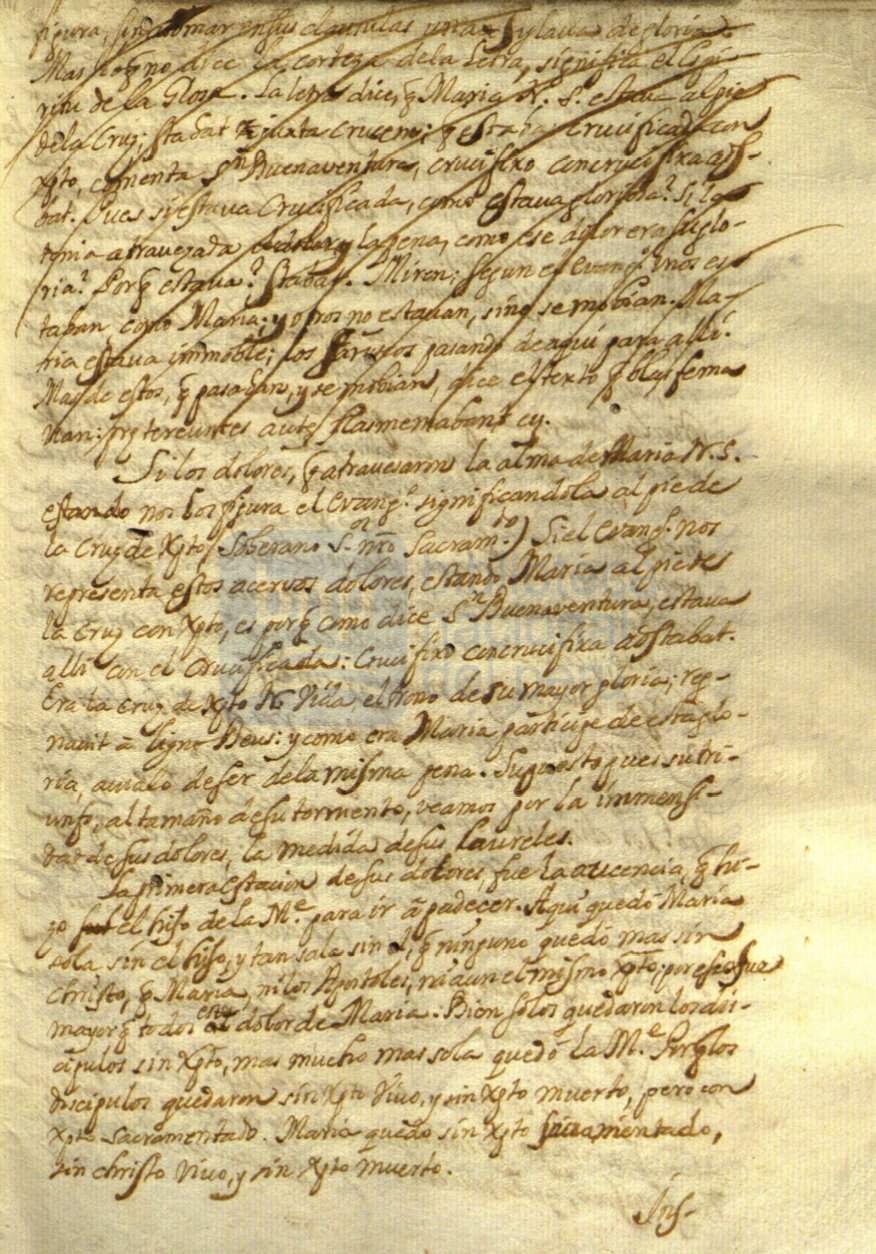 figura, sin tomar en sus clausulas una sylava de gloria.
Mas lo q̃ no dice la corteza de la Letra, significa el Espi-
ritu de la Glosa. La letra dice, q̃ Maria N. S. estava al pie
de la Cruz; stabat juxta crucem; q̃ estava crucificada con
Xpto, comenta Sn Buenaventura, crucifixo concrucifixa ads-
bat. Pues si estava Crucificada, como estava gloriosa? Si la
tenia atravezada el dolor, y la pena, como ese dolor era su glo-
ria? Porq̃ estava? Stabat. Miren; segun el evang.o unos es-
taban, como Maria; y otros no estavan, sino se mobian. Ma-
ria estava immoble; los fariseos pasando de aqui para alli.
Mas de estos, q̃ pasaban, y se mobian, dice el texto q̃ blasfema
van: prętereuntes autẽ blasmemabant eũ.
Si los dolores, q̃ atravesaron la alma de Maria N. S.
estando nos los figura el evang.o significandola al pie de
la Cruz de Xpto, (Soberano S.or nr̃o Sacram.do) Si el evang.o nos
representa estos acervos dolores, estando Maria al pie de
la Cruz con Xpto, es porq̃ como dice Sn Buenaventura, estava
alli con el Crucificada: Crucifixo concrucifixa adstabat.
Era la Cruz de Xpto N. Vida el trono de su mayor gloria; reg-
navit à ligno Deus: y como era Maria participe de esta glo-
ria, aviala de ser de la misma pena. Supuesto pues su tri-
unfo, al tamaño de su tormento, veamos por la immensi-
dad de sus dolores, la medida de sus Laureles.
La primera estacion de sus dolores, fue la ausencia, q̃ hi-
zo el hijo de la M.e para ir à padecer. Aqui quedó Maria
sola sin el hijo, y tan sola sin el, q̃ ninguno quedó mas sin
Christo, q̃ Maria, ni los Apostoles, ni aun el mismo Xpto; por eso fue
mayor q̃ todos este dolor de Maria. Bien solos quedaron los dis-
cipulos sin Xpto, mas mucho mas sola quedó la M.e Porq̃ los
Discipulos quedaron sin Xpto Vivo, y sin Xpto muerto, pero con
Xpto Sacramentado. Maria quedo sin Xpto sacramentado,
sin christo Vivo, y sin Xpto muerto.
Ins-
biblioteca
nacional
del perú